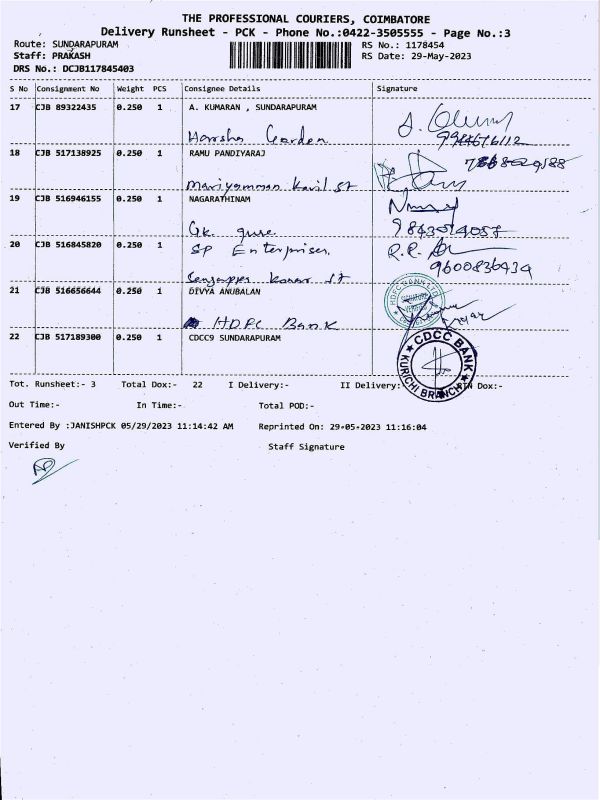 THE PROFESSIONAL COURIERS, COIMBATORE
Delivery Runsheet - PCK - Phone No.:0422-3505555 - Page No.:3
Route: SUNDARAPURAM RS No.: 1178454
Staff: PRAKASH RS Date: 29-May-2023
DRS No.: DCJB117845403
S No Consignment No Weight PCS Consignee Details Signature
17 CJB 89322435 0.250 1 A. KUMARAN , SUNDARAPURAM
Harsha Garden
18 CJB 517138925 0.250 1 RAMU PANDIYARAJ
Mariyamman Kovil St
19 CJB 516946155 0.250 1 NAGARATHINAM
Gk.
9843514057
20 CJB 516845820 0.250 1 SP Enterprises.
9600836939
St
21 CJB 516656644 0.250 1 DIVYA ANUBALAN
HDFC Bank
HDFC BANK LTD
22 CJB 517189300 0.250 1 CDCC9 SUNDARAPURAM
CDCC BANK
KURICHI BRANCH
Tot. Runsheet:- 3 Total Dox:- 22 I Delivery:- II Delivery: RTN Dox:-
Out Time:- In Time:- Total POD:-
Entered By :JANISHPCK 05/29/2023 11:14:42 AM Reprinted On: 29-05-2023 11:16:04
Verified By Staff Signature